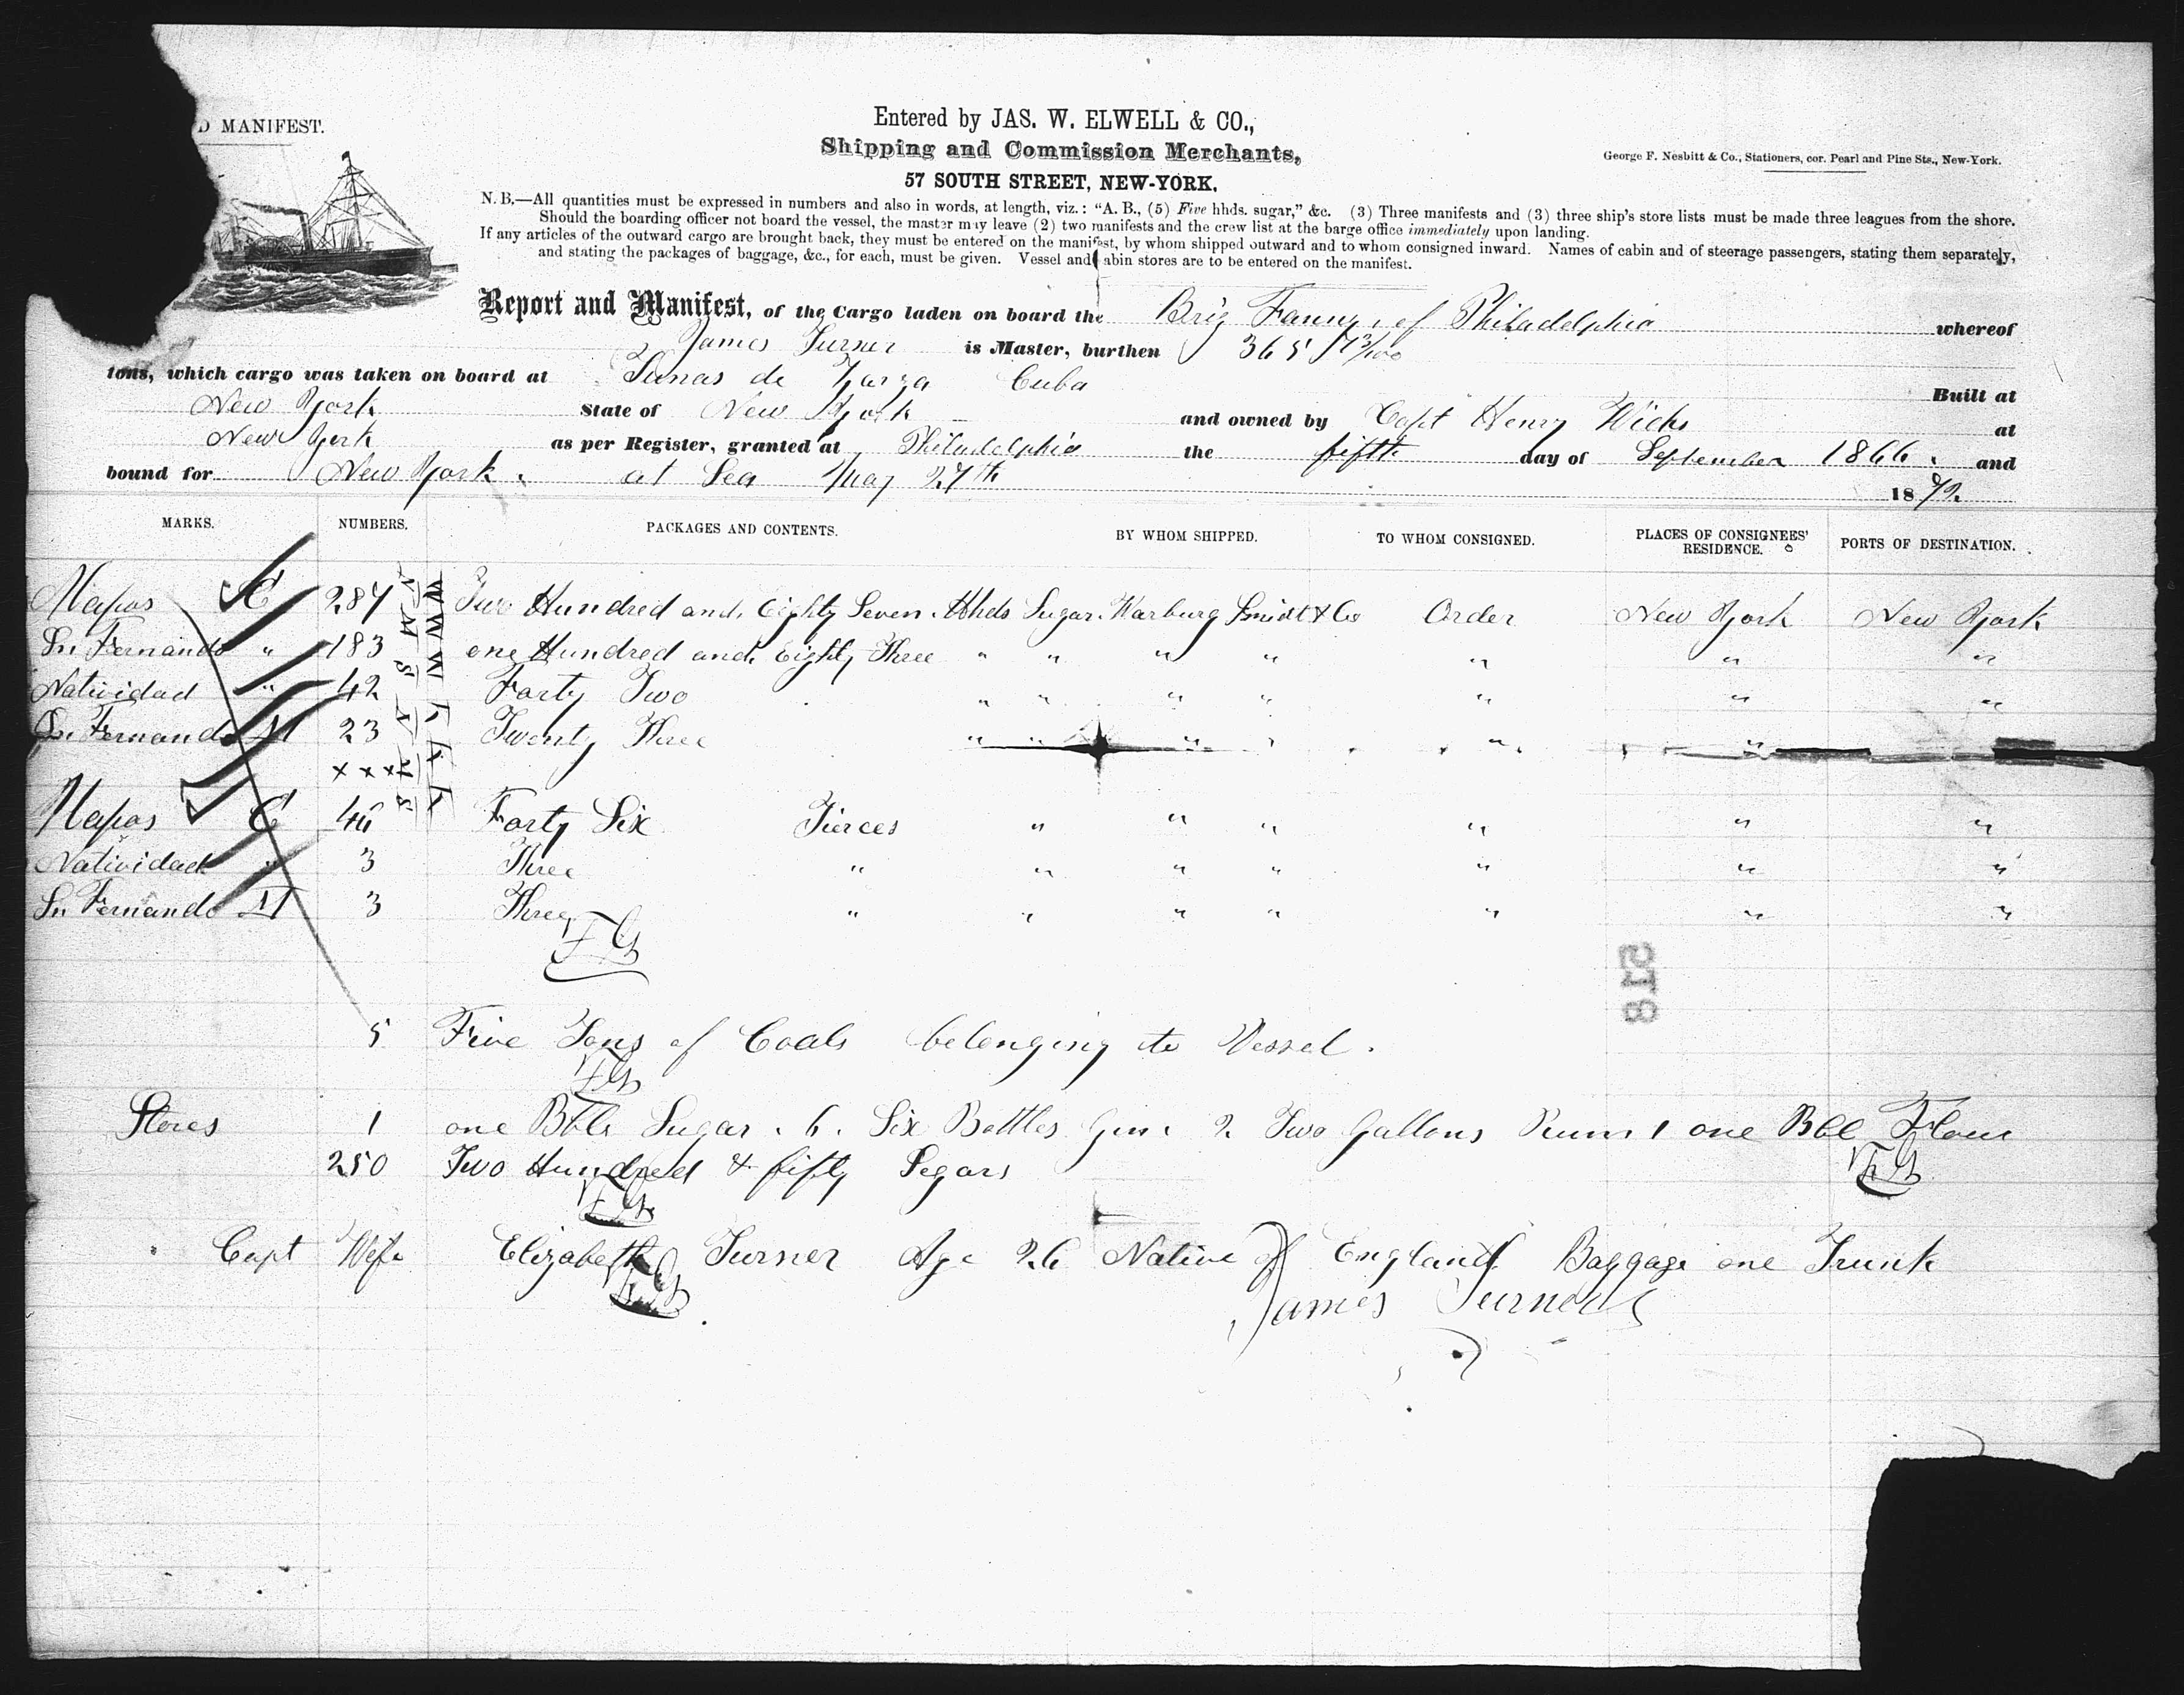 D MANIFEST.
Entered by JAS. W. ELWELL & CO.,
Shipping and Commission Merchants,
57 SOUTH STREET, NEW-YORK.
George F. Nesbitt & Co., Stationers, cor. Pearl and Pine Sts., New-York.
N. B.—All quantities must be expressed in numbers and also in words, at length, viz.: "A. B., (5) Five hhds. sugar," &c. (3) Three manifests and (3) three ship's store lists must be made three leagues from the shore.
Should the boarding officer not board the vessel, the master may leave (2) two manifests and the crew list at the barge office immediately upon landing.
If any articles of the outward cargo are brought back, they must be entered on the manifest, by whom shipped outward and to whom consigned inward. Names of cabin and of steerage passengers, stating them separately,
and stating the packages of baggage, &c., for each, must be given. Vessel and cabin stores are to be entered on the manifest.
Report and Manifest, of the Cargo laden on board the Brig Fanny, of Philadelphia whereof
James Turner is Master, burthen 365 73/100
tons, which cargo was taken on board at Tunas de Zarza Cuba Built at
New York State of New York and owned by Capt Henry Wicks at
New York as per Register, granted at Philadelphia the fifth day of September 1866. and
bound for New York. at Sea May 27th 1872.
MARKS. NUMBERS. PACKAGES AND CONTENTS. BY WHOM SHIPPED. TO WHOM CONSIGNED. PLACES OF CONSIGNEES' RESIDENCE. PORTS OF DESTINATION.
Mapos C 287 Two Hundred and Eighty Seven Hhds Sugar Warburg Smidt & Co Order New York New York
Sn Fernando " 183 one Hundred and Eighty Three " " " " " " "
Natividad " 42 Forty Two " " " " " " "
Sn Fernando 23 Twenty Three " " " " " "
x x x
Mapos C 46 Forty Six Tierces " " " " " "
Natividad " 3 Three " " " " " " "
Sn Fernando 3 Three " " " " " " "
5118
5 Five Tons of Coals belonging to Vessel.
Stores 1 one Bble Sugar. 6. Six Bottles Gin. 2 Two Gallons Rum 1 one Bbl Flour
250 Two Hundred & fifty Segars
Capt Wife Elizabeth Turner Age 26 Native of England Baggage one Trunk
James Turner